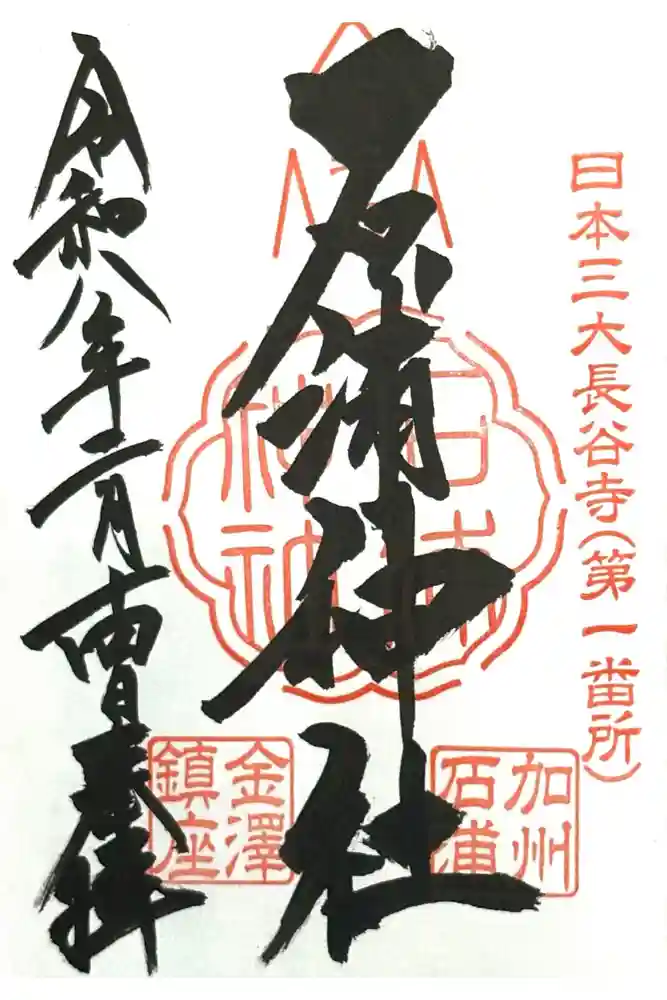 日本三大長谷寺(第一番所)
加州
石浦
石浦神社
石浦
神社
金澤
鎮座
令和八年二月日奉拝